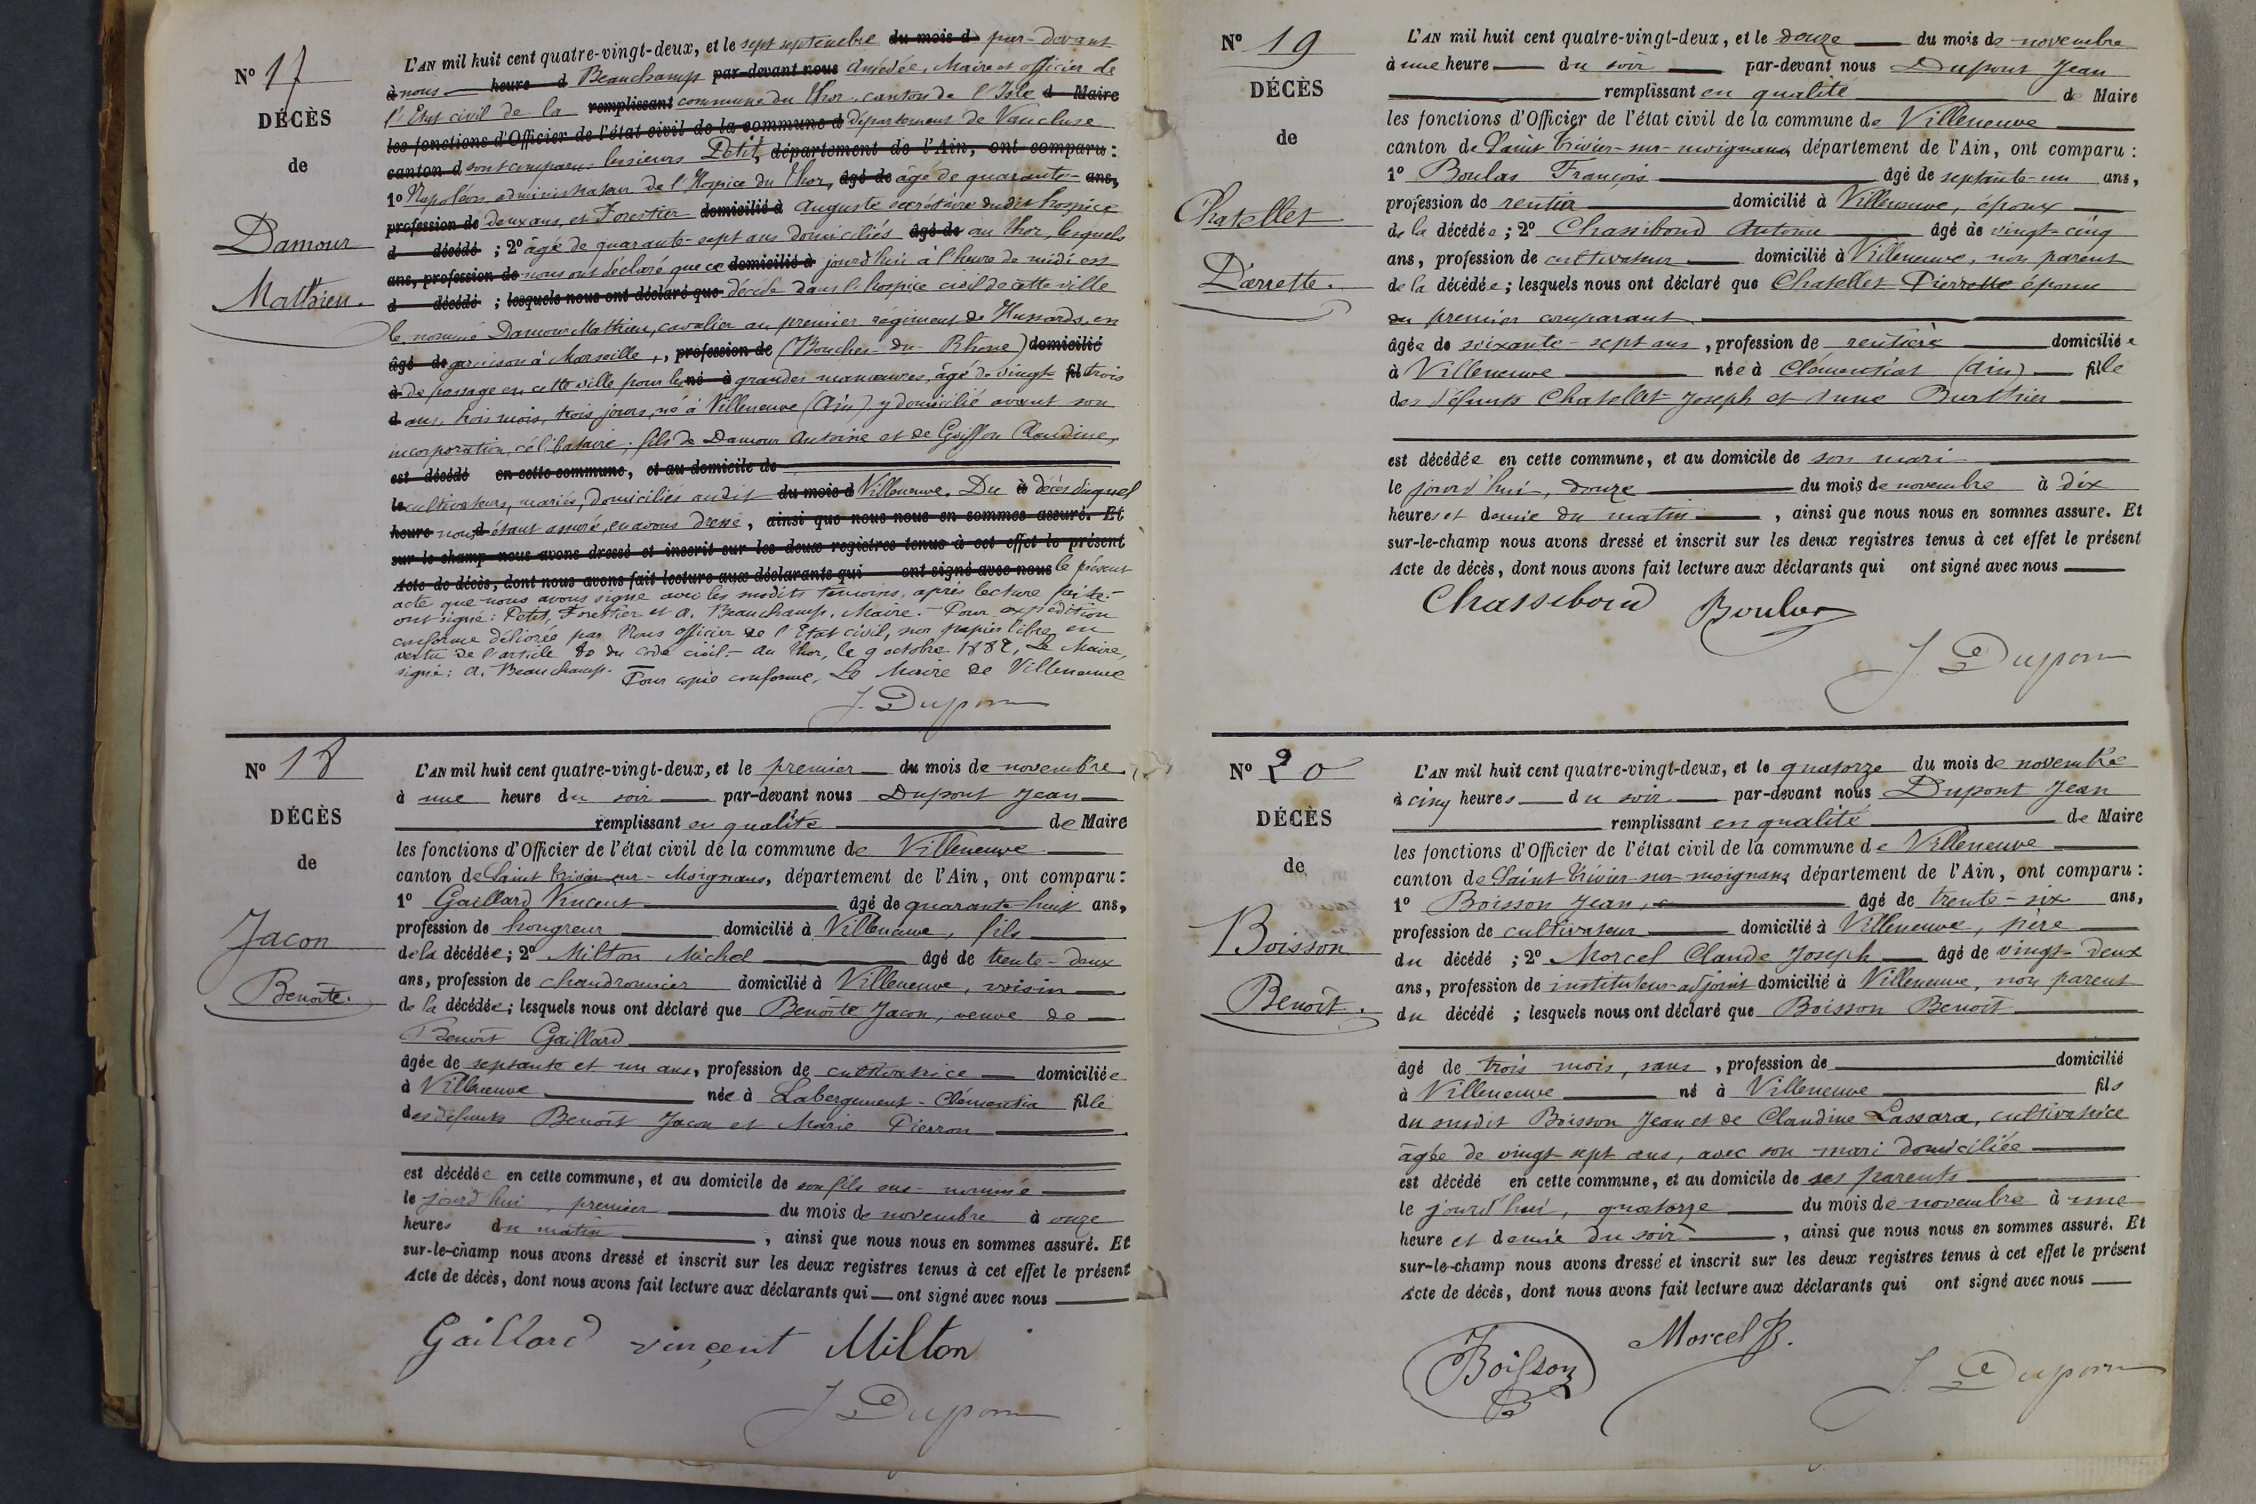 Nº 17
DÉCÈS
de
Damour
Mathieu.
L'AN mil huit cent quatre-vingt-deux, et le sept septembre du mois d par-devant
à nous heure d Beauchamp par-devant nous Amédée, Maire et officier de
l'Etat civil de la remplissant commune du Thor, canton de l'Isle d Maire
les fonctions d'Officier de l'état civil de la commune d département de Vaucluse
canton d sont comparus les sieurs Petit, département de l'Ain, ont comparu :
1º Napoléon administrateur de l'Hospice du Thor, âgé de âgé de quarante- ans,
profession de deux ans, et Forestier domicilié à Auguste secrétaire dudit hospice
d décédé ; 2º âgé de quarante-sept ans domiciliés âgé de au Thor, lesquels
ans, profession de nous ont déclaré que ce domicilié à jourd'hui à l'heure de midi est
d décédé ; lesquels nous ont déclaré que décédé dans l'hospice civil de cette ville
le nommé Damour Mathieu, cavalier au premier régiment de Hussards, en
âgé de garnison à Marseille, , profession de (Bouches-du-Rhône) domicilié
à de passage en cette ville pour les né à grandes manœuvres, âgé de vingt- fil trois
d ans, trois mois, trois jours, né à Villeneuve (Ain) y domicilié avant son
incorporation, célibataire ; fils de Damour Antoine et de Goiffon Claudine,
est décédé en cette commune, et au domicile de
le cultivateurs, mariés, domiciliés audit du mois d Villeneuve. Du à décès duquel
heure nous d étant assuré, en avons dressé, ainsi que nous nous en sommes assuré. Et
sur-le-champ nous avons dressé et inscrit sur les deux registres tenus à cet effet le présent
Acte de décès, dont nous avons fait lecture aux déclarants qui ont signé avec nous le présent
acte que nous avons signé avec les susdits témoins, après lecture faite.-
ont signé : Petit, Forestier et A. Beauchamp, Maire. - Pour expédition
conforme délivrée par Nous officier de l'Etat civil, sur papier libre en
vertu de l'article 80 du code civil. - Au Thor, le 9 octobre 1882, Le Maire,
signé : A. Beauchamp. Pour copie conforme, Le Maire de Villeneuve
J. Dupont
Nº 18
DÉCÈS
de
Jacon
Benoîte.
L'AN mil huit cent quatre-vingt-deux, et le premier du mois de novembre
à une heure du soir par-devant nous Dupont Jean
remplissant en qualité de Maire
les fonctions d'Officier de l'état civil de la commune de Villeneuve
canton de Saint Trivier-sur-Moignans, département de l'Ain, ont comparu :
1º Gaillard Vincent âgé de quarante-huit ans,
profession de hongreur domicilié à Villeneuve, fils
de la décédée ; 2º Milton Michel âgé de trente-deux
ans, profession de chaudronnier domicilié à Villeneuve, voisin
de la décédée ; lesquels nous ont déclaré que Benoîte Jacon, veuve de
Benoît Gaillard
âgée de septante et un ans, profession de cultivatrice domiciliée
à Villeneuve née à Labergement-Clémentia fille
des défunts Benoît Jacon et Marie Pierron
est décédée en cette commune, et au domicile de son fils sus-nommé
le jourd'hui, premier du mois de novembre à onze
heures du matin , ainsi que nous nous en sommes assuré. Et
sur-le-champ nous avons dressé et inscrit sur les deux registres tenus à cet effet le présent
Acte de décès, dont nous avons fait lecture aux déclarants qui ont signé avec nous
Gaillard vinçent Milton
J Dupont
Nº 19
DÉCÈS
de
Chatellet
Pierrette.
L'AN mil huit cent quatre-vingt-deux, et le douze du mois de novembre
à une heure du soir par-devant nous Dupont Jean
remplissant en qualité de Maire
les fonctions d'Officier de l'état civil de la commune de Villeneuve
canton de Saint Trivier-sur-moignans département de l'Ain, ont comparu :
1º Boulas François âgé de septante-un ans,
profession de rentier domicilié à Villeneuve, époux
de la décédée ; 2º Chassiboud Antoine âgé de vingt-cinq
ans, profession de cultivateur domicilié à Villeneuve, non parent
de la décédée ; lesquels nous ont déclaré que Chatellet Pierrette épouse
du premier comparant
âgée de soixante-sept ans, profession de rentière domiciliée
à Villeneuve née à Clémentiat (Ain) fille
des défunts Chatellet Joseph et Anne Burthier
est décédée en cette commune, et au domicile de son mari
le jourd'hui, douze du mois de novembre à dix
heures et demie du matin , ainsi que nous nous en sommes assuré. Et
sur-le-champ nous avons dressé et inscrit sur les deux registres tenus à cet effet le présent
Acte de décès, dont nous avons fait lecture aux déclarants qui ont signé avec nous
Chassiboud Boulas
J. Dupont
Nº 20
DÉCÈS
de
Boisson
Benoît.
L'AN mil huit cent quatre-vingt-deux, et le quatorze du mois de novembre
à cinq heures du soir par-devant nous Dupont Jean
remplissant en qualité de Maire
les fonctions d'Officier de l'état civil de la commune de Villeneuve
canton de Saint Trivier-sur-moignans département de l'Ain, ont comparu :
1º Boisson Jean, âgé de trente-six ans,
profession de cultivateur domicilié à Villeneuve, père
du décédé ; 2º Morcel Claude Joseph âgé de vingt-deux
ans, profession de instituteur-adjoint domicilié à Villeneuve, non parent
du décédé ; lesquels nous ont déclaré que Boisson Benoît
âgé de trois mois, sans , profession de domicilié
à Villeneuve né à Villeneuve fils
du susdit Boisson Jean et de Claudine Lassara, cultivatrice
âgée de vingt-sept ans, avec son mari domiciliée
est décédé en cette commune, et au domicile de ses parents
le jourd'hui, quatorze du mois de novembre à une
heure et demie du soir , ainsi que nous nous en sommes assuré. Et
sur-le-champ nous avons dressé et inscrit sur les deux registres tenus à cet effet le présent
Acte de décès, dont nous avons fait lecture aux déclarants qui ont signé avec nous
Boisson Morcel
J. Dupont